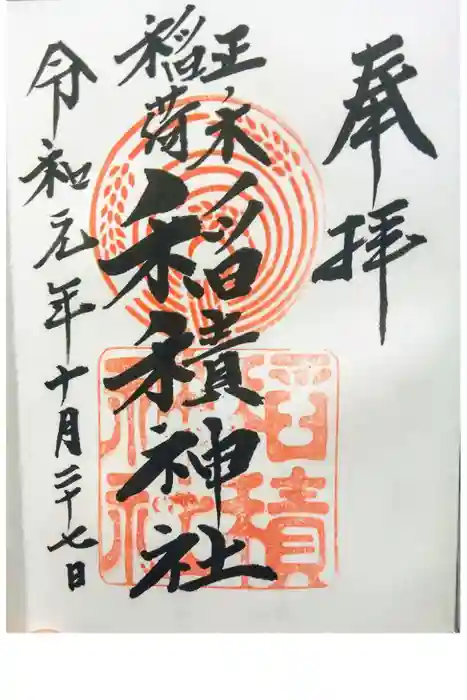 奉拝
王ノ木
稲荷
稲積神社
令和元年十月二十七日
稲積
神社